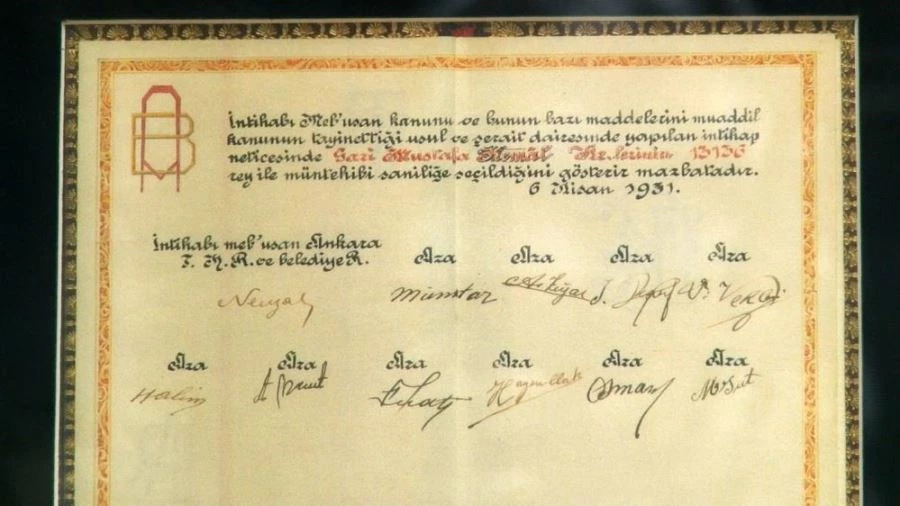 İntihabı Meb'usan kanunu ve bunun bazı maddelerini muaddil
kanunun tayinettiği usul ve şerait dairesinde yapılan intihap
neticesinde Gazi Mustafa Kemâl Hz.lerinin 13136
rey ile müntehibi saniliğe seçildiğini gösterir mazbatadır.
6 Nisan 1931.
İntihabı meb'usan Ankara
T. H. R. ve belediye R.
Aza Aza Aza Aza
Mümtaz
Aza Aza Aza Aza Aza Aza
Halim Hayrullah Osman